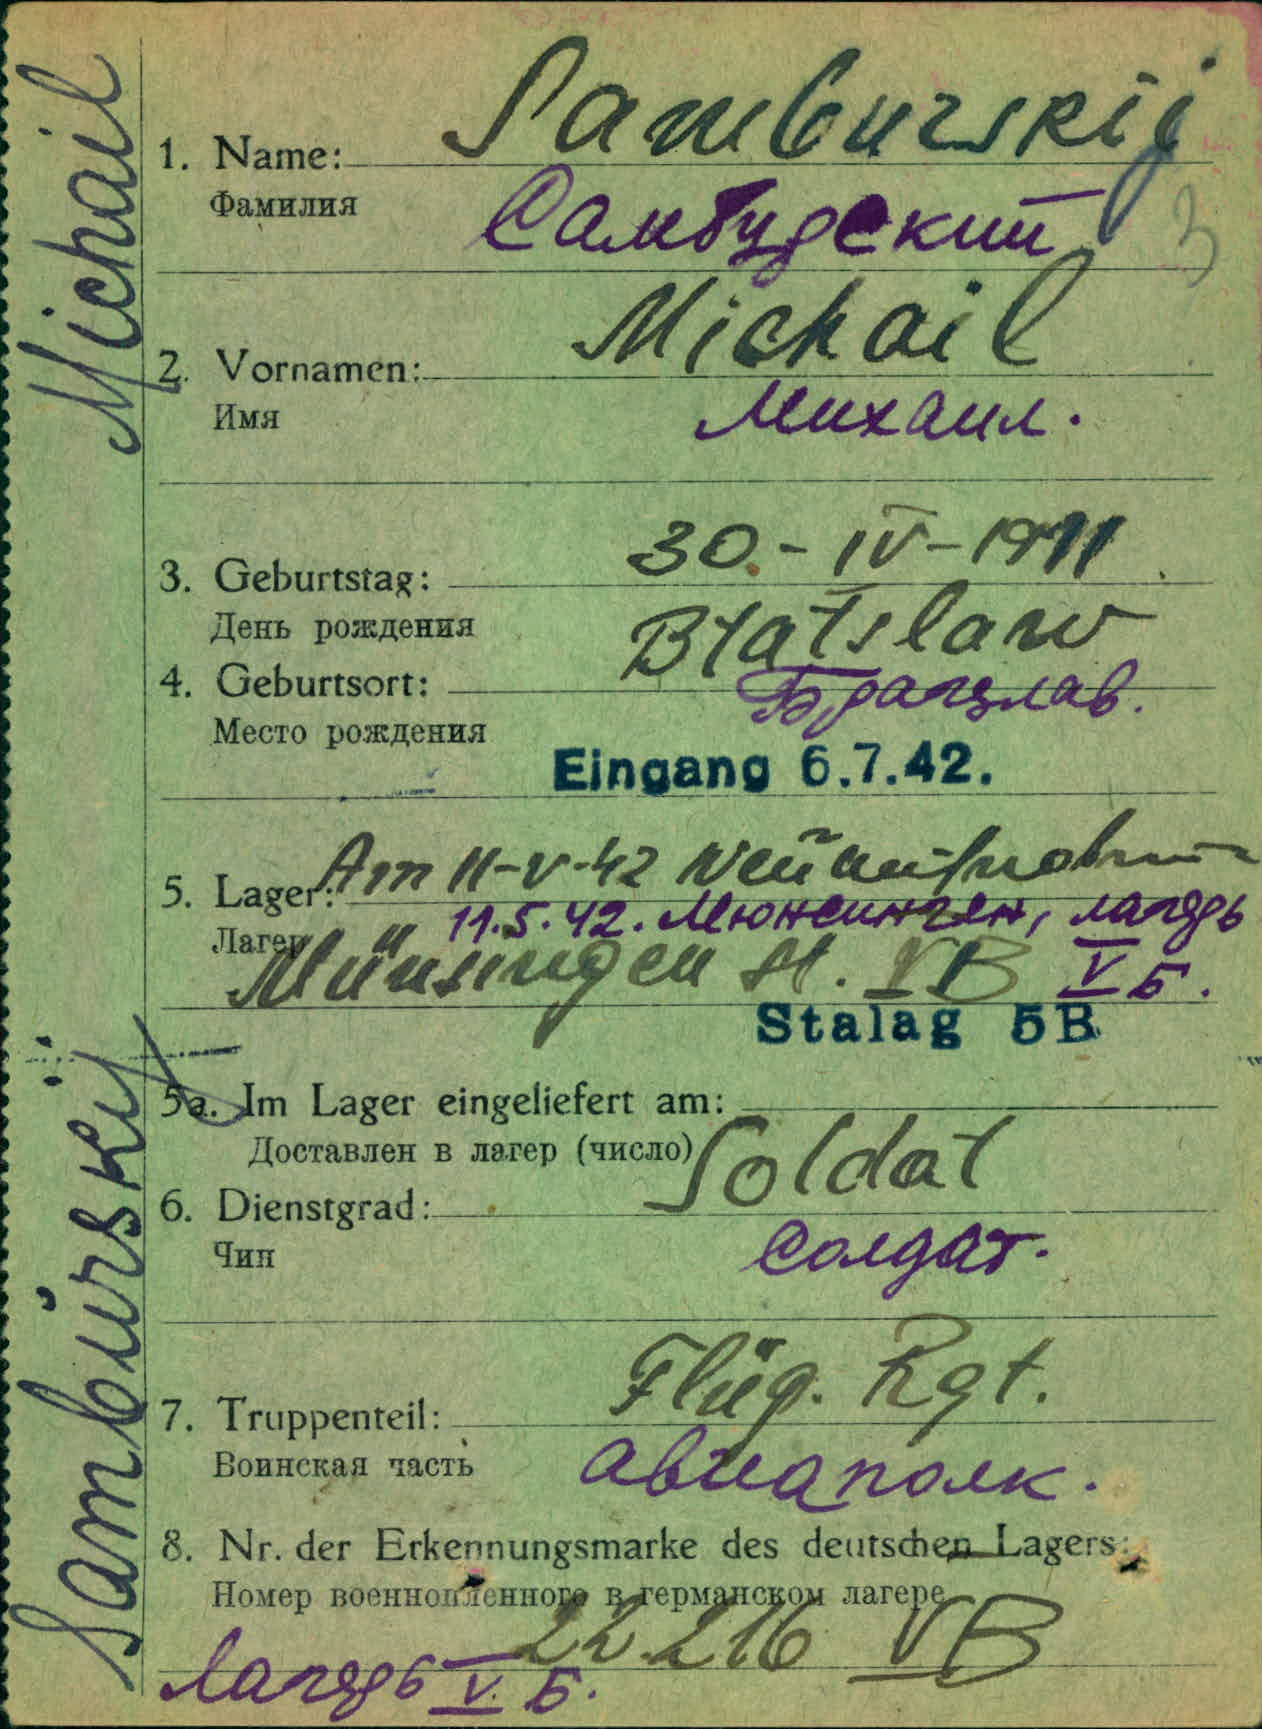 Michail
Samburskij
1. Name: Samburskij
Фамилия Самбурский
3
2. Vornamen: Michail
Имя Михаил.
3. Geburtstag: 30.-IV-1911
День рождения
4. Geburtsort: Bratslaw
Место рождения Брацлав.
Eingang 6.7.42.
5. Lager: Am 11-V-42
Лагер 11.5.42. Мюнсинген, лагерь
Münsingen st. VB V Б.
Stalag 5B
5a. Im Lager eingeliefert am:
Доставлен в лагер (число)
6. Dienstgrad: Soldat
Чин Солдат.
7. Truppenteil: Flüg. Rgt.
Воинская часть авиаполк.
8. Nr. der Erkennungsmarke des deutschen Lagers:
Номер военнопленного в германском лагере
22.216 VB
Лагерь V. Б.